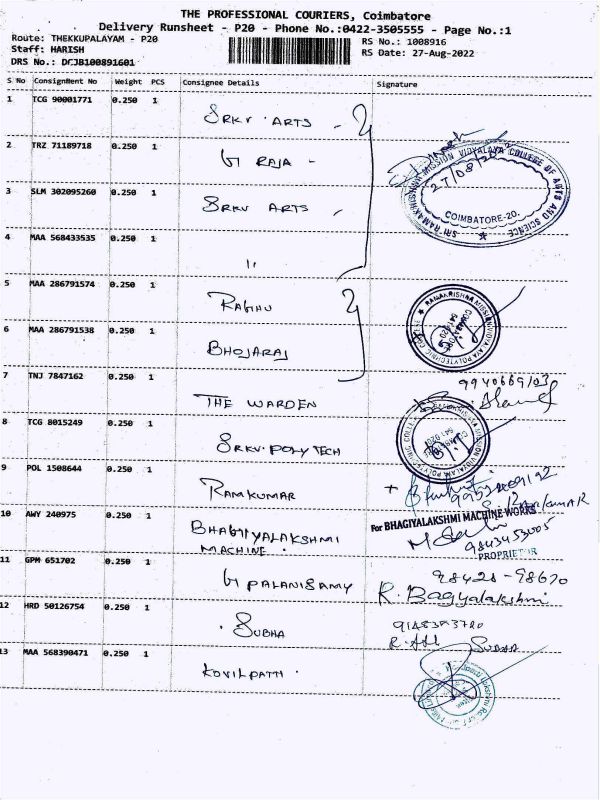 THE PROFESSIONAL COURIERS, Coimbatore
Delivery Runsheet - P20 - Phone No.:0422-3505555 - Page No.:1
Route: THEKKUPALAYAM - P20
RS No.: 1008916
Staff: HARISH
RS Date: 27-Aug-2022
DRS No.: DCJB100891601
S No Consignment No Weight PCS Consignee Details Signature
1 TCG 90001771 0.250 1 SRKV ARTS -
2 TRZ 71189718 0.250 1 G RAJA -
3 SLM 302095260 0.250 1 SRKV ARTS -
27/08/2022
SRI RAMAKRISHNA MISSION VIDYALAYA COLLEGE OF ARTS AND SCIENCE
COIMBATORE-20.
4 MAA 568433535 0.250 1 11
5 MAA 286791574 0.250 1 RAGHU
RAMAKRISHNA MISSION VIDYALAYA POLYTECHNIC COLLEGE
COIMBATORE
641 020
6 MAA 286791538 0.250 1 BHOJARAJ
7 TNJ 7847162 0.250 1 THE WARDEN
8 TCG 8015249 0.250 1 SRKV POLYTECH
RAMAKRISHNA MISSION VIDYALAYA POLYTECHNIC COLLEGE
641 020
9 POL 1508644 0.250 1 RAMKUMAR
10 AWY 240975 0.250 1 BHAGIYALAKSHMI MACHINE.
For BHAGIYALAKSHMI MACHINE WORKS
9843453005
PROPRIETOR
11 GPM 651702 0.250 1 G PALANISAMY
98428-98670
R. Bagyalakshmi
12 HRD 50126754 0.250 1 SUBHA
SUBHA
13 MAA 568390471 0.250 1 KOVILPATTI.